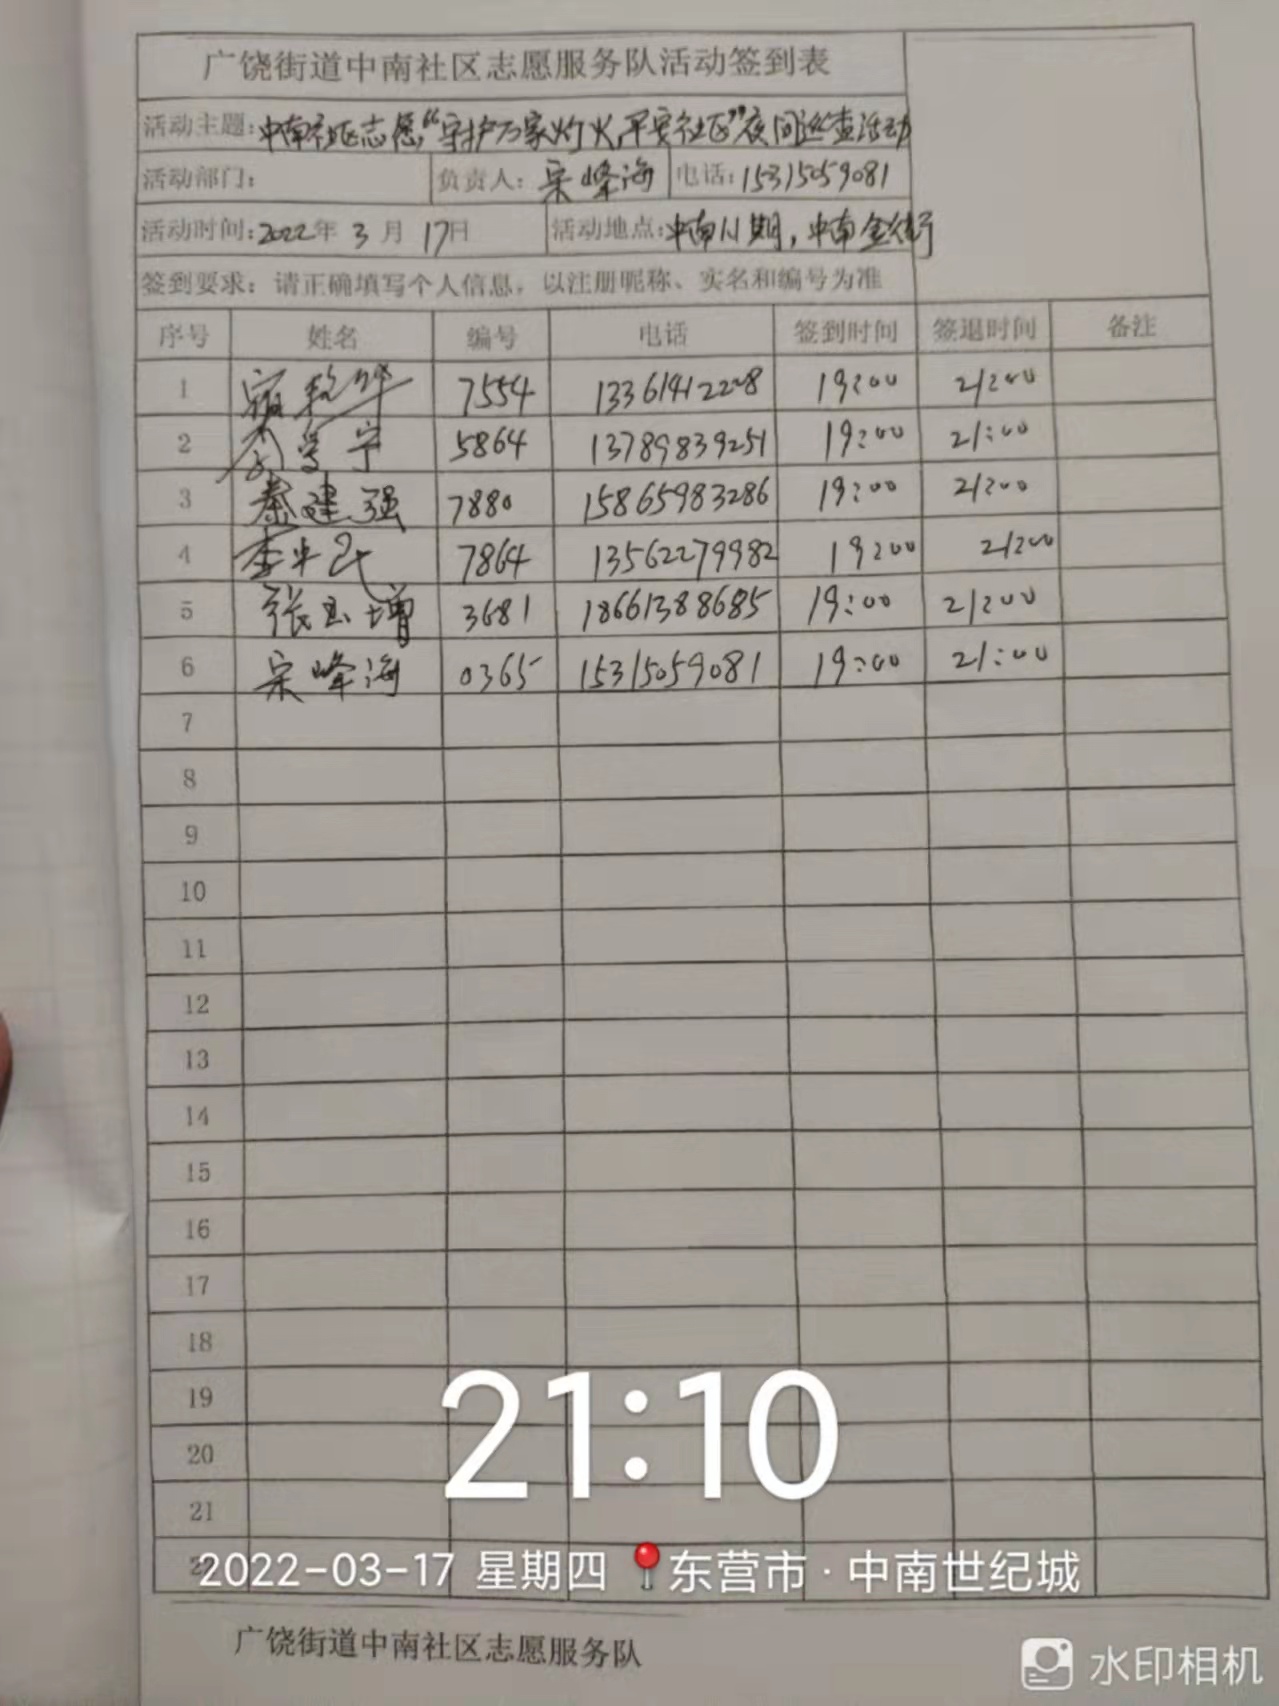 广饶街道中南社区志愿服务队活动签到表
活动主题:中南社区志愿“守护万家灯火,平安社区”夜间巡查活动
活动部门: 负责人: 宋峰海 电话:15315059081
活动时间:2022年 3 月 17日 活动地点:中南 期,中南金街
签到要求: 请正确填写个人信息, 以注册昵称、实名和编号为准
序号 姓名 编号 电话 签到时间 签退时间 备注
1 7554 13361412228 19:00 21:00
2 5864 13789839251 19:00 21:00
3 秦建强 7880 15865983286 19:00 21:00
4 李中民 7864 13562279982 19:00 21:00
5 张玉增 3681 18661388685 19:00 21:00
6 宋峰海 0365 15315059081 19:00 21:00
7
8
9
10
11
12
13
14
15
16
17
18
19
20
21
21:10
2022-03-17 星期四 东营市·中南世纪城
广饶街道中南社区志愿服务队
水印相机